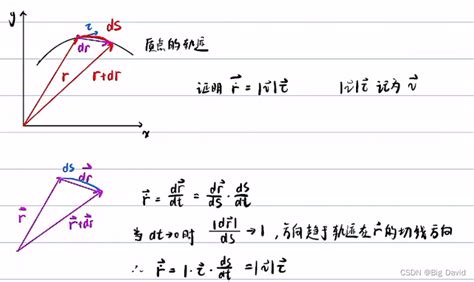 y
τ
ds
dr
质点的轨迹
r
r+dr
x
证明 r⃗̇ = |v⃗|τ⃗
|v⃗|τ⃗ 记为 v⃗
ds dr⃗
r⃗
r⃗+dr⃗
r⃗̇ = dr⃗/dt = dr⃗/ds · ds/dt
当 dt→0时 |dr⃗|/ds → 1, 方向趋于轨迹在r⃗的切线方向
∴ r⃗̇ = 1·τ⃗·ds/dt = |v⃗|τ⃗
CSDN @Big David